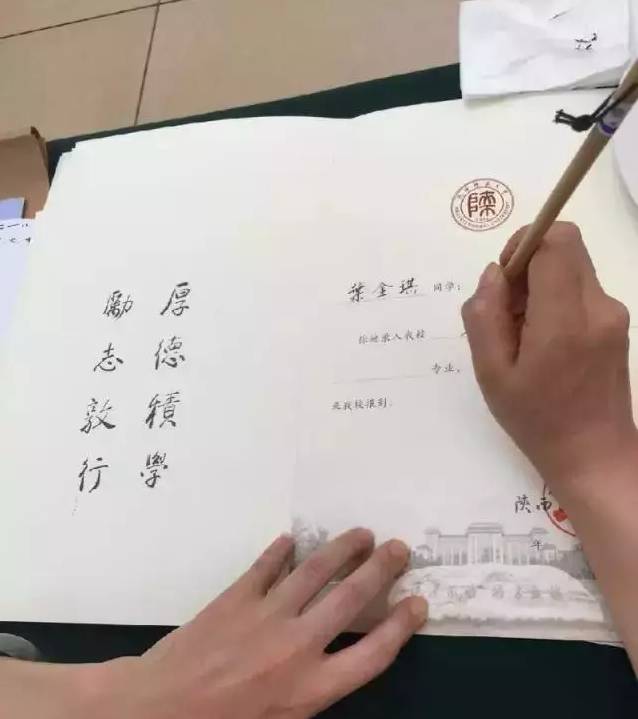 厚德積學
勵志敦行
葉金琪 同学:
你被录入我校
专业,
来我校报到.
陕西
年